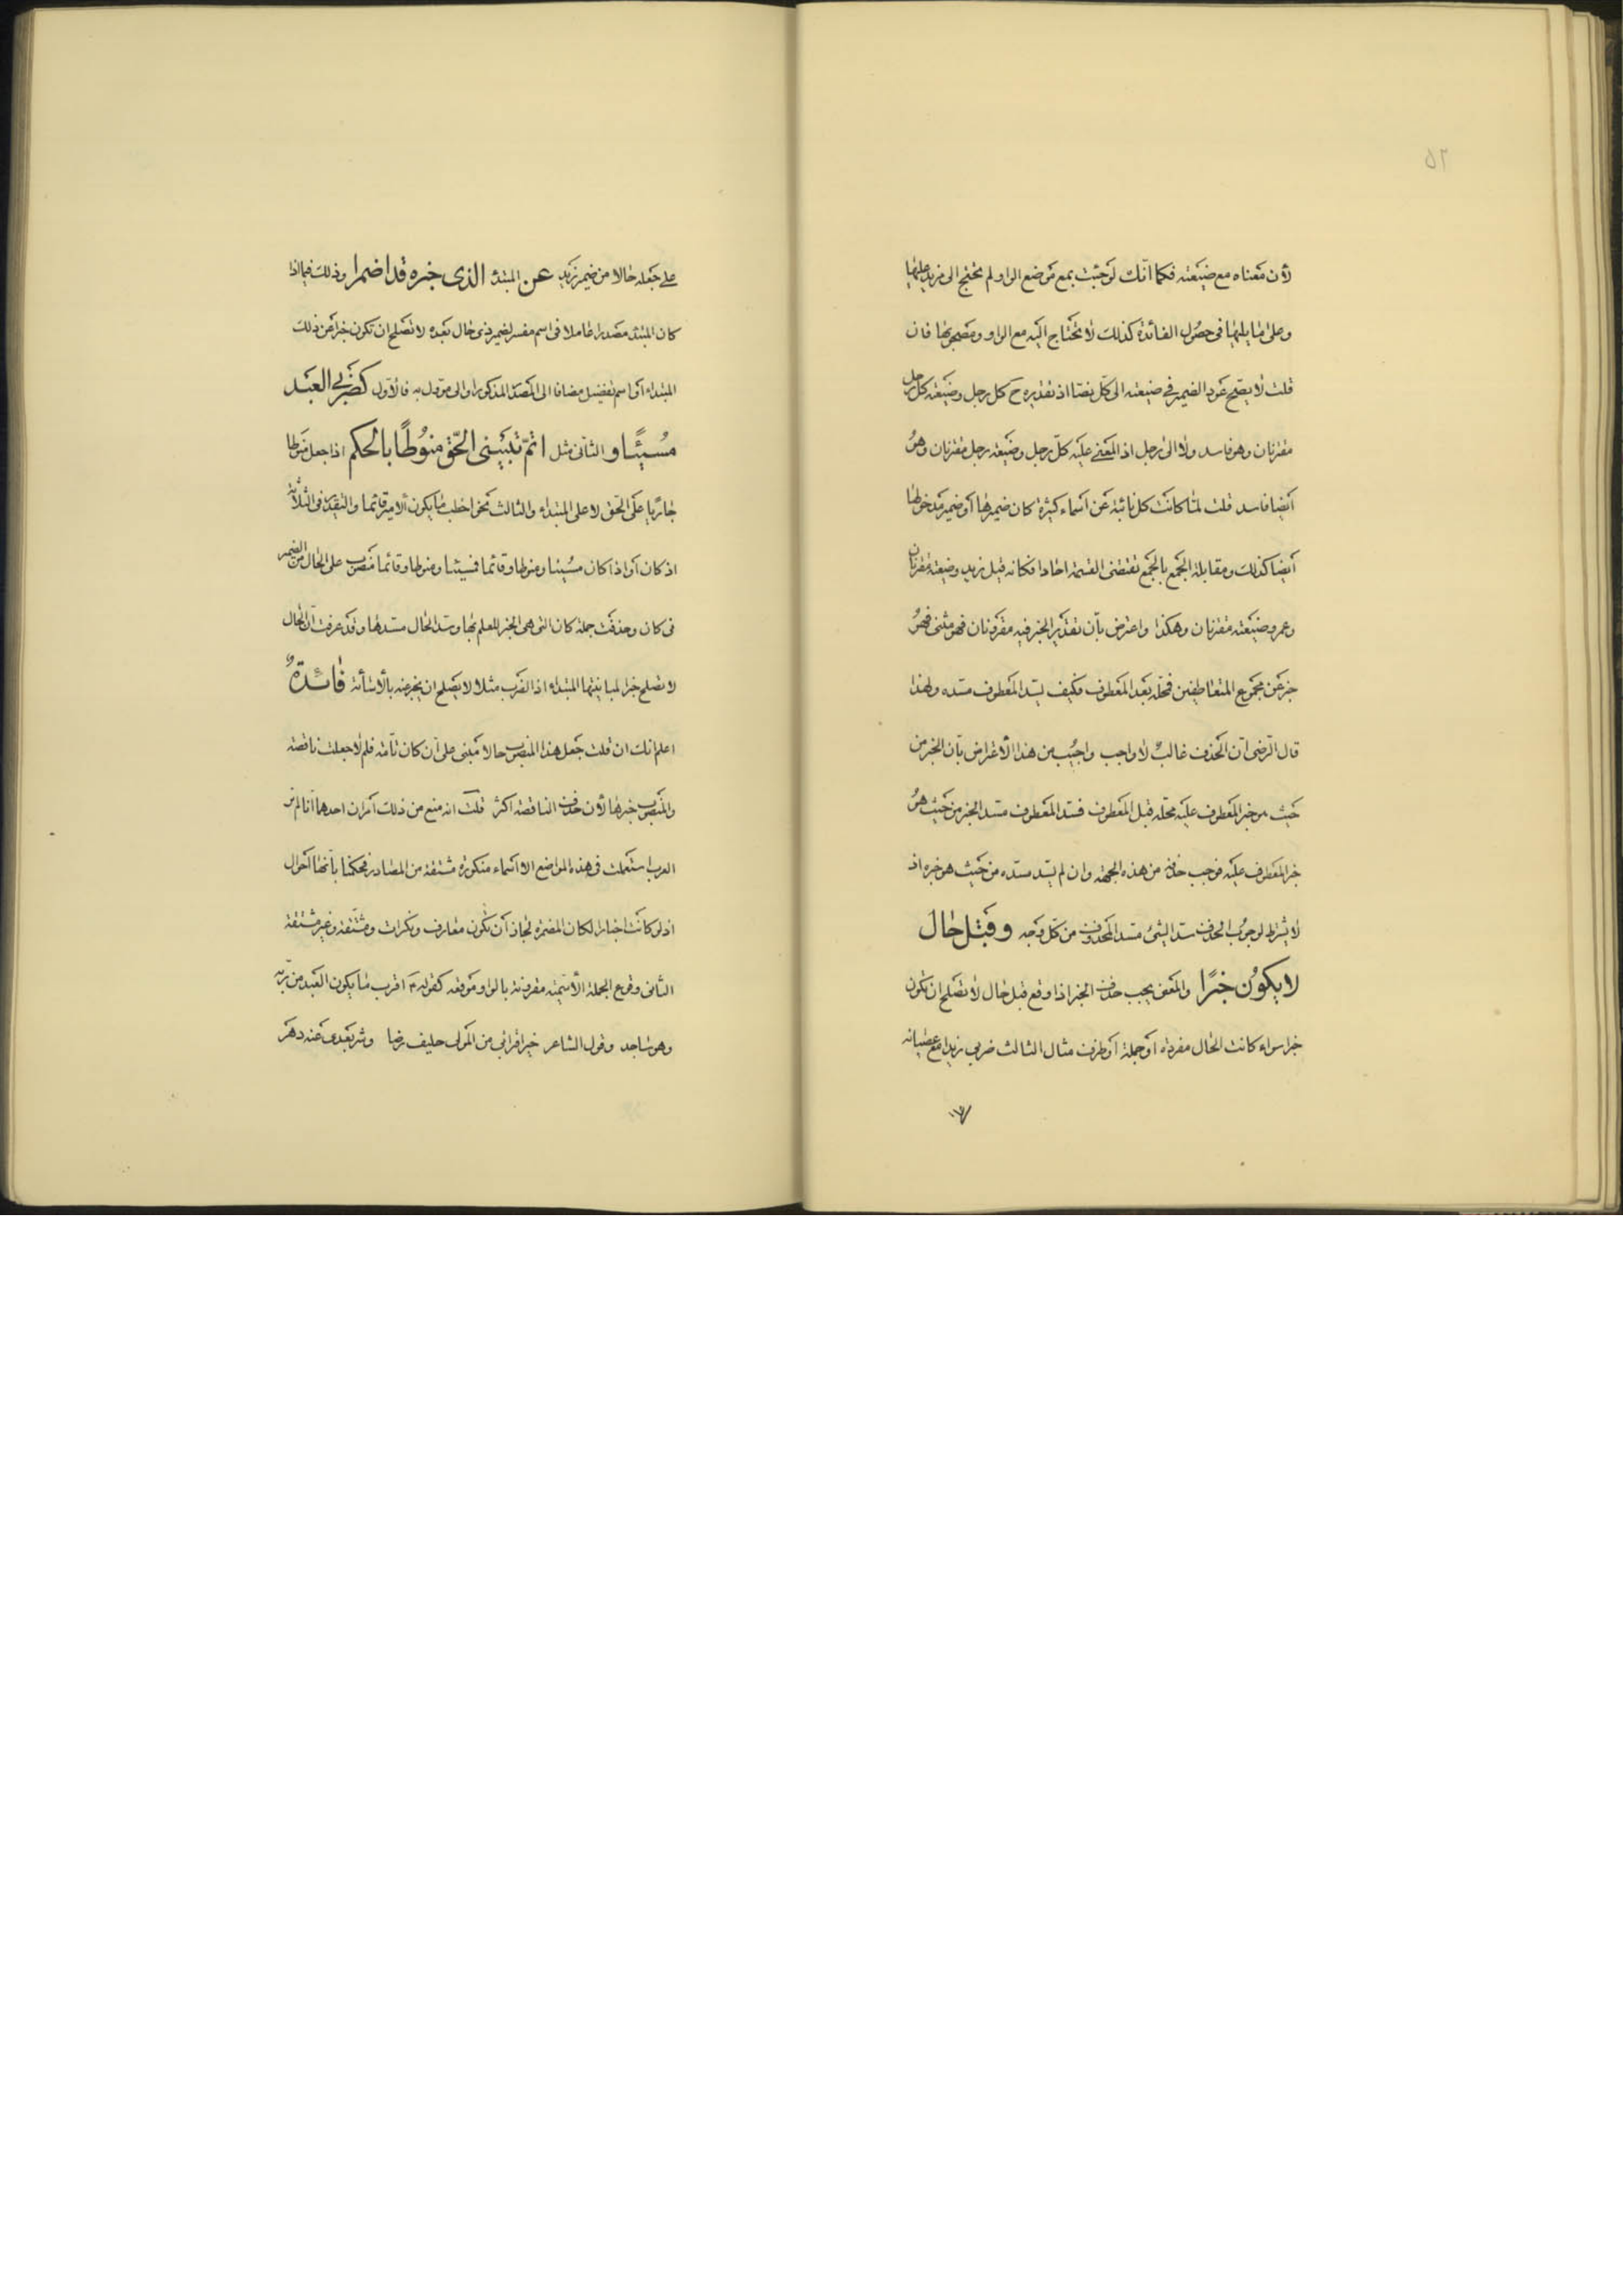 ٥٢
لأن معناه مع ضيعته فكما انّك لو جئت بمع موضع الواو لم تحتج الى مزيد عليها
وعلى ما يليها في حصول الفائدة كذلك لا تحتاج اليه مع الواو ومصحوبها فان
قلت لا يصح عود الضمير في ضيعته الى كل نصا اذ تقديره ح كل رجل وضيعته كل رجل
مقترنان وهو فاسد ولا الى رجل اذ المعنى عليه كلّ رجل وضيعة رجل مقترنان وهو
أيضا فاسد قلت لمّا كانت كل نائبة عن أسماء كثيرة كان ضميرها أو ضمير مدخولها
أيضا كذلك ومقابلة الجمع بالجمع تقتضى القسمة احادا فكانه قيل زيد وضيعته مقترنان
وعمرو ضيعته مقترنان وهكذا واعترض بأن تقدير الخبر فيه مقرونان فهو مثنى فهو
خبر عن مجموع المتعاطفين فمحلّه بعد المعطوف فكيف يسد المعطوف مسده ولهذا
قال الرّضى انّ الحذف غالبٌ لا واجب واجيب من هذا الأعتراض بأن الخبر من
حيث هو خبر المعطوف عليه محله قبل المعطوف فسد المعطوف مسد الخبر من حيث هو
خبر المعطوف عليه فوجب حذفه من هذه الجهة وان لم يسد مسده من حيث هو خبره اذ
لا يشترط لوجوب الحذف سد الشئ مسد المحذوف من كل وجه وقبل حال
لا يكون خبرًا والمعنى يجب حذف الخبر اذا وقع قبل حال لا تصلح ان تكون
خبرا سواء كانت الحال مفردة أو جملة أو ظرف مثال الثالث ضربى زيدا مع عصيانه
على جعله حالا من ضمير زيد عن المبتدٔ الذى خبره قد اضمرا وذلك فيما اذا
كان المبتدٔ مصدرا عاملا فى اسم مفسر لضمير ذى حال بعده لا تصلح ان تكون خبرا عن ذلك
المبتداء أو اسم تفضيل مضافا الى المصدر المذكور او الى مؤول به فالأول كضربى العبد
مسيئًا والثانى مثل اتمّ تبيينى الحّق منوطًا بالحكم اذا جعل منوطا
جاريا على الحق لا على المبتداء والثالث نحو اخطب ما يكون الأمير قائما والتقدير فى الثلاثة
اذ كان أو اذا كان مسيئا ومنوطا وقائما فمسيئا ومنوطا وقائما نصب على الحال من الضمير
فى كان وحذفت جملة كان التى هى الخبر للعلم بها وسد الحال مسدها وقد عرفت انّ الحال
لا تصلح خبرا لمباينتها المبتداء اذ الضرب مثلا لا يصلح ان يخبر عنه بالأسأة فائدةٌ
اعلم انك ان قلت جعل هذا المنصوب حالا مبنى على أن كان تامّة فلم لا جعلت ناقصة
والمنصوب خبرها لأن حذف الناقصة اكثر قلت انه منع من ذلك أمران احدهما أنا لم نر
العرب استعملت فى هذه المواضع الا اسماء منكورة مشتقة من المصادر فحكمنا بأنها احوال
اذ لو كانت اخبارا لكان المضمرة لجاز أن تكون معارف ونكرات ومشتقة وغير مشتقة
الثانى وقوع الجملة الأسمية مقرونة بالواو موقعه كقوله اقرب ما يكون العبد من ربه
وهو ساجد وقول الشاعر خير اقترابى من المولى حليف رضا وشر بعدى عنه وهو